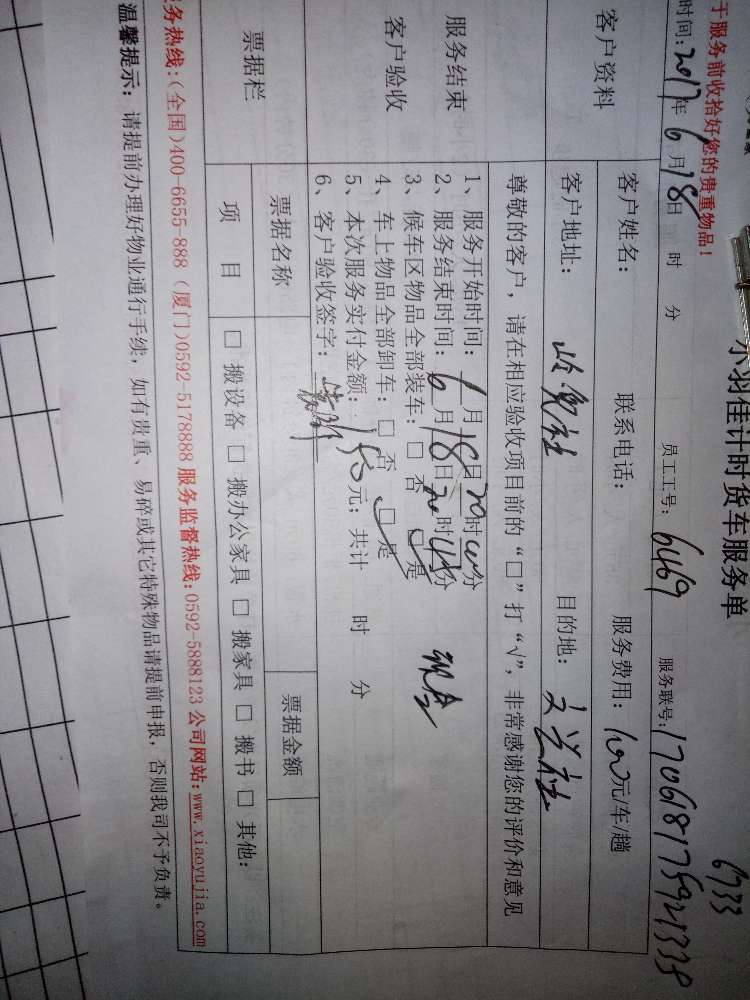 小羽佳计时货车服务单
6733
于服务前收拾好您的贵重物品！
时间：2017年6月18日 时 分 员工工号：6469 服务联号：170618175921338
客户资料
客户姓名： 联系电话： 服务费用：100元/车/趟
客户地址： 目的地：文兴社
尊敬的客户，请在相应验收项目前的“□”打“√”，非常感谢您的评价和意见
服务结束
客户验收
1、服务开始时间： 月18日20时00分
2、服务结束时间：6月18日20时45分
3、候车区物品全部装车：□否 □是
4、车上物品全部卸车：□否 □是
5、本次服务实付金额： 元；共计 时 分
6、客户验收签字：
现金
票据栏
票据名称 票据金额
项 目 □ 搬设备 □ 搬办公家具 □ 搬家具 □ 搬书 □ 其他：
务热线：(全国)400-6655-888 (厦门)0592-5178888 服务监督热线：0592-5888123 公司网站：www.xiaoyujia.com
温馨提示：请提前办理好物业通行手续，如有贵重、易碎或其它特殊物品请提前申报，否则我司不予负责。